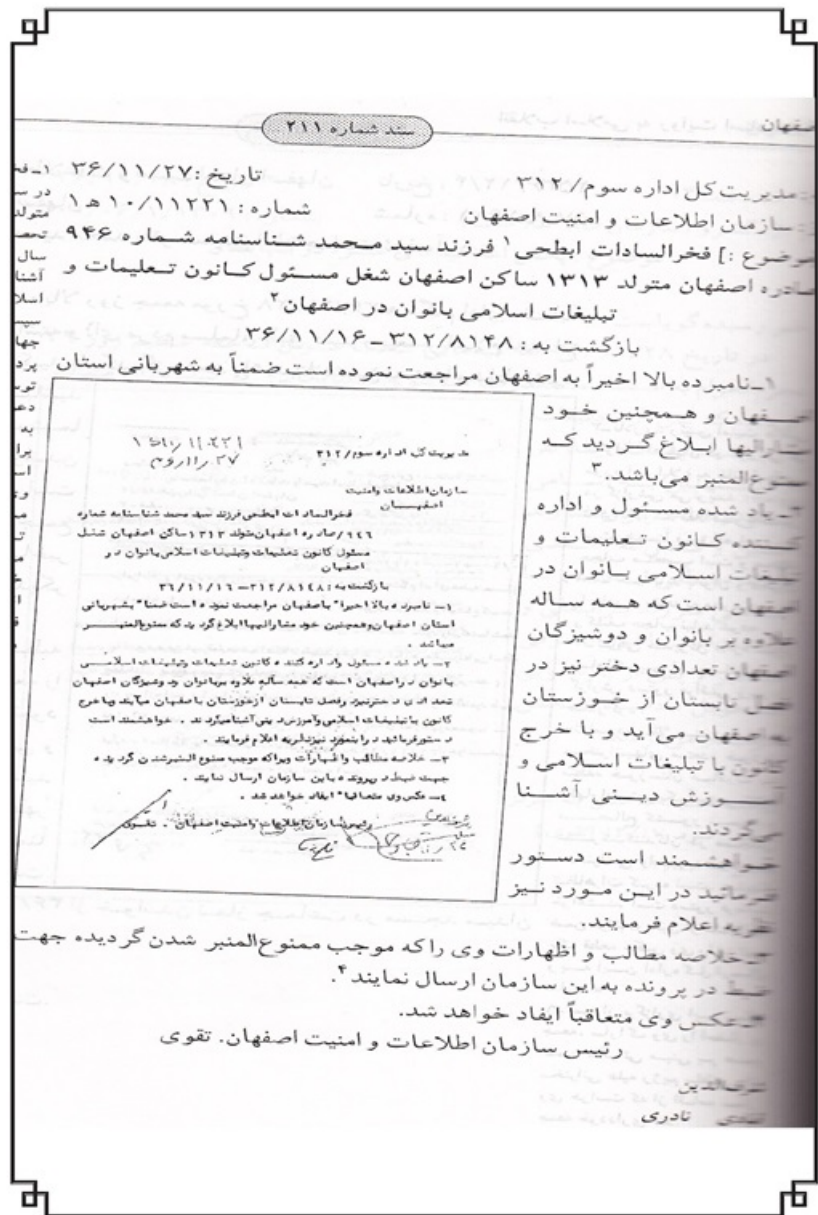 سند شماره ۲۱۱
مدیریت کل اداره سوم/۳۱۲ تاریخ: ۳۶/۱۱/۲۷
سازمان اطلاعات و امنیت اصفهان شماره: ۱۰/۱۱۲۲۱ ه‍ ۱
موضوع :] فخرالسادات ابطحی۱ فرزند سید محمد شناسنامه شماره ۹۴۶
صادره اصفهان متولد ۱۳۱۳ ساکن اصفهان شغل مسئول کانون تعلیمات و
تبلیغات اسلامی بانوان در اصفهان۲
بازگشت به: ۳۱۲/۸۱۴۸ ـ ۳۶/۱۱/۱۶
۱ـ نامبرده بالا اخیراً به اصفهان مراجعت نموده است ضمناً به شهربانی استان
اصفهان و همچنین خود
مشارالیها ابلاغ گردید که
ممنوع‌المنبر می‌باشد.۳
۲ـ یاد شده مسئول و اداره
کننده کانون تعلیمات و
تبلیغات اسلامی بانوان در
اصفهان است که همه ساله
علاوه بر بانوان و دوشیزگان
اصفهان تعدادی دختر نیز در
فصل تابستان از خوزستان
به اصفهان می‌آید و با خرج
کانون با تبلیغات اسلامی و
آموزش دینی آشنا
می‌گردند.
خواهشمند است دستور
فرمائید در این مورد نیز
نظریه اعلام فرمایند.
۳ـ خلاصه مطالب و اظهارات وی را که موجب ممنوع‌المنبر شدن گردیده جهت
ضبط در پرونده به این سازمان ارسال نمایند۴.
۴ـ عکس وی متعاقباً ایفاد خواهد شد.
رئیس سازمان اطلاعات و امنیت اصفهان. تقوی
شرف‌الدین
نادری
مدیریت کل اداره سوم/۳۱۲
سازمان اطلاعات وامنیت
اصفهان
فخرالسادات ابطحی فرزند سید محمد شناسنامه شماره
۹۴۶/صادره اصفهان متولد ۱۳۱۳ ساکن اصفهان شغل
مسئول کانون تعلیمات وتبلیغات اسلامی بانوان در
اصفهان
بازگشت به: ۳۱۲/۸۱۴۸ – ۳۶/۱۱/۱۶
۱– نامبرده بالا اخیرا" باصفهان مراجعت نموده است ضمنا" بشهربانی
استان اصفهان وهمچنین خود مشارالیها ابلاغ گردید که ممنوع‌المنبر
میباشد .
۲– یاد شده مسئول واداره کننده کانون تعلیمات وتبلیغات اسلامی
بانوان در اصفهان است که همه ساله علاوه بربانوان ودوشیزگان اصفهان
تعدادی دخترنیز درفصل تابستان ازخوزستان باصفهان میآیند وباخرج
کانون باتبلیغات اسلامی وآموزش دینی آشنا میگردند . خواهشمند است
دستورفرمائید دراینمورد نیزنظریه اعلام فرمایند .
۳– خلاصه مطالب واظهارات ویراکه موجب ممنوع المنبرشدن گردیده
جهت ضبط درپرونده باین سازمان ارسال نمایند .
۴– عکس وی متعاقبا" ایفاد خواهد شد .
رئیس سازمان اطلاعات وامنیت اصفهان . تقوی